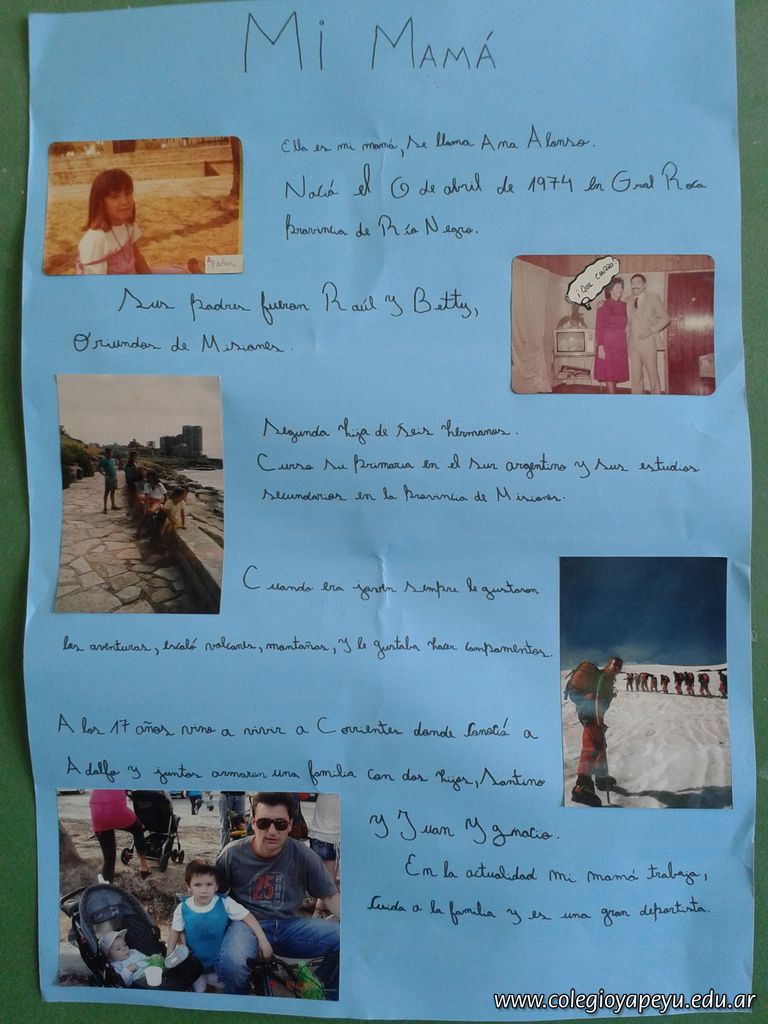 Mi Mamá
Ella es mi mamá, se llama Ana Alonso.
Nació el 6 de abril de 1974 en Gral Roca
Provincia de Río Negro.
¡QUE CAÑERO!
Sus padres fueron Raúl y Betty,
Oriundos de Misiones.
Segunda hija de seis hermanos.
Curso su primaria en el sur argentino y sus estudios
secundarios en la Provincia de Misiones.
Cuando era joven siempre le gustaron
las aventuras, escaló volcanes, montañas, y le gustaba hacer campamentos.
A los 17 años vino a vivir a Corrientes donde conoció a
Adolfo y juntos armaron una familia con dos hijos, Santino
y Juan Ygnacio.
En la actualidad mi mamá trabaja,
cuida a la familia y es una gran deportista.
25
www.colegioyapeyu.edu.ar